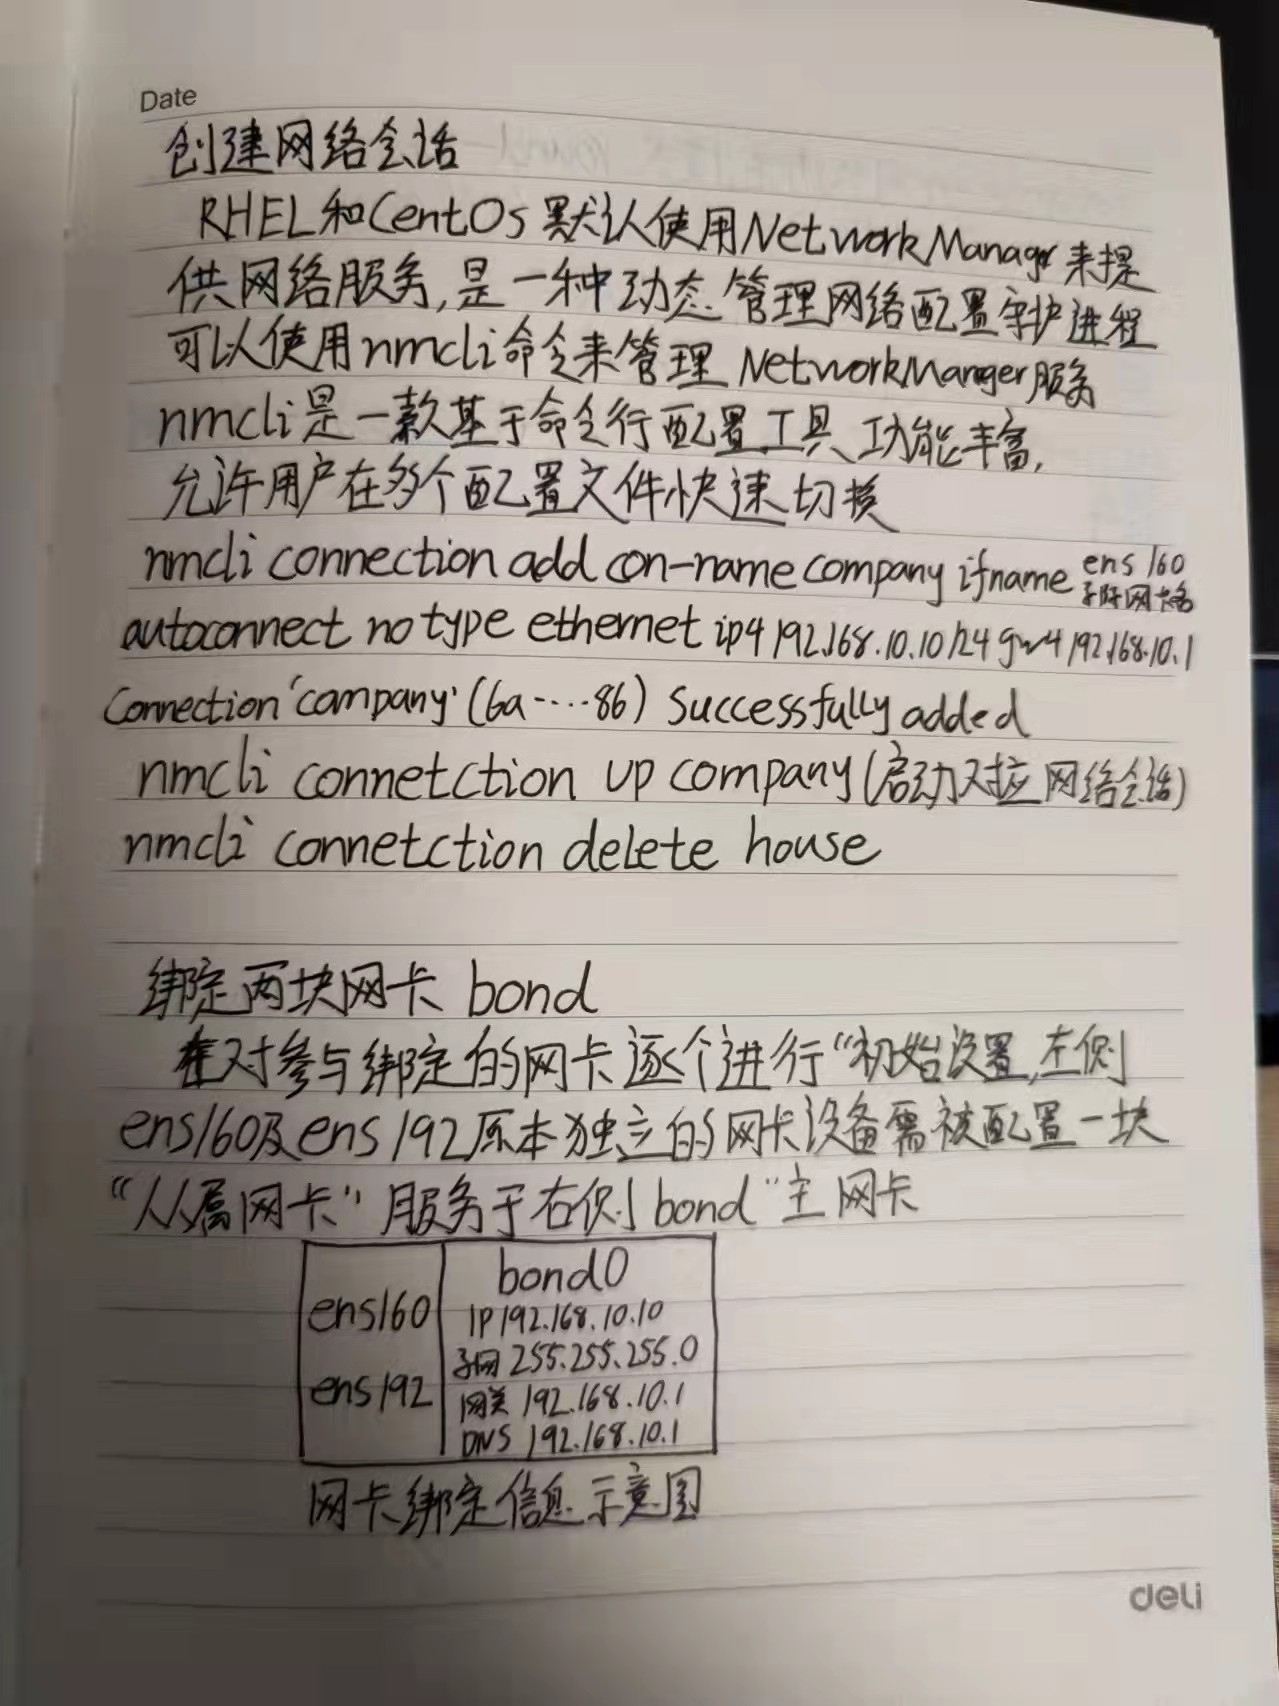 Date
创建网络会话
RHEL和CentOs默认使用NetworkManager来提
供网络服务,是一种动态管理网络配置守护进程
可以使用nmcli命令来管理 NetworkManger服务
nmcli是一款基于命令行配置工具、功能丰富,
允许用户在多个配置文件快速切换
nmcli connection add con-name company ifname ens160
网卡名
autoconnect no type ethernet ip4 192.168.10.10/24 gw4 192.168.10.1
Connection 'company' (6a----86) Successfully added
nmcli connetction up company (启动对应网络会话)
nmcli connetction delete house
绑定两块网卡 bond
在对参与绑定的网卡逐个进行“初始设置,左侧
ens160及ens192原本独立的网卡设备需被配置一块
“从属网卡”服务于右侧bond“主网卡
bond0
ens160 IP 192.168.10.10
子网 255.255.255.0
ens192 网关 192.168.10.1
DNS 192.168.10.1
网卡绑定信息示意图
deli